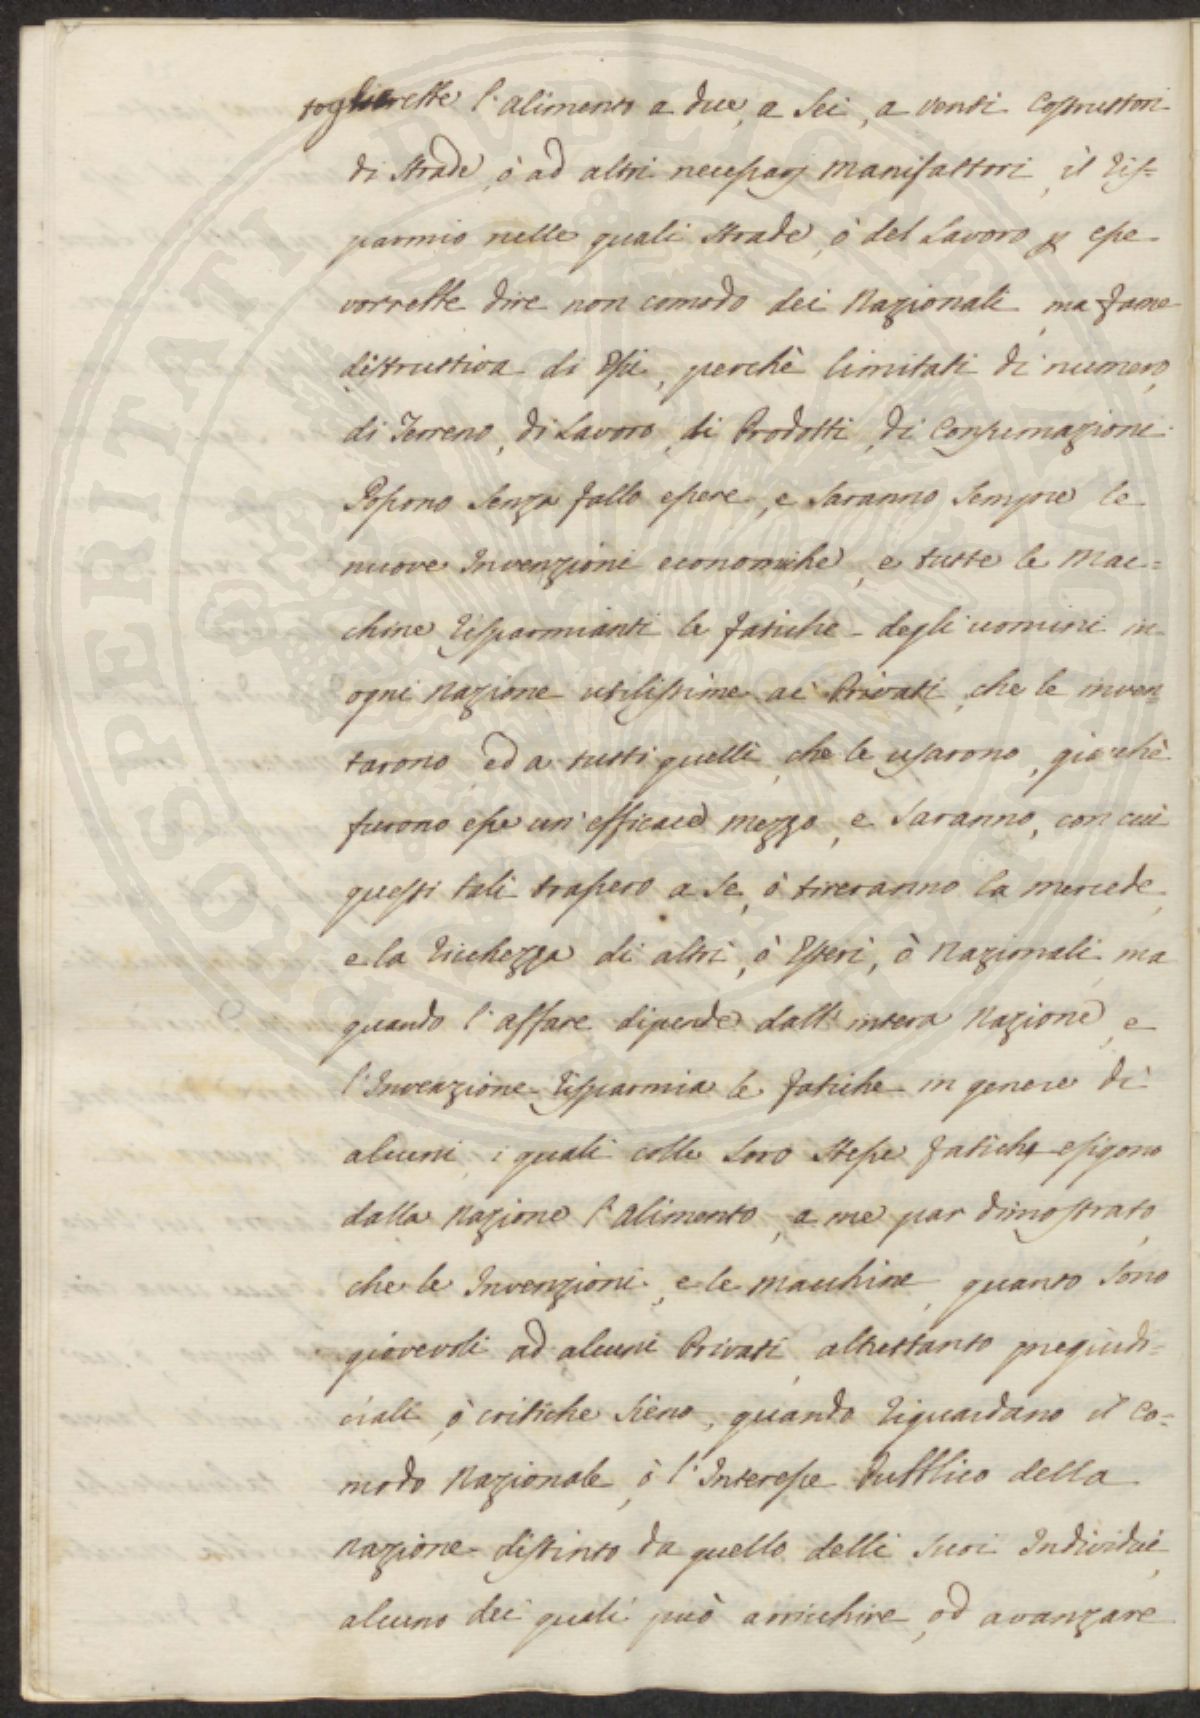 toglierebbe l'alimento a due, a sei, a venti Costruttori
di strade, ò ad altri necessarj manifattori, il ris=
parmio nelle quali strade, ò del Lavoro p esse
vorrebbe dire non comodo dei Nazionali, ma fame
distruttiva di Essi, perchè limitati di numero,
di Terreno, di Lavoro, di Prodotti, di Consumazioni.
Possono senza fallo essere, e saranno sempre le
nuove Invenzioni economiche, e tutte le Mac=
chine risparmianti le fatiche degli uomini in
ogni Nazione utilissime ai Privati, che le inven=
tarono, ed a tutti quelli, che le usarono, giachè
furono esse un' efficace mezzo, e saranno, con cui
questi tali trassero a se, ò tireranno la mercede,
e la ricchezza di altri, ò Esteri, ò Nazionali, ma
quando l'affare dipende dall' intera Nazione, e
l'Invenzione risparmia le fatiche in genere di
alcuni, i quali colle loro stesse fatiche esigono
dalla Nazione l'alimento, a me par dimostrato,
che le Invenzioni, e le macchine, quanto sono
giovevoli ad alcuni Privati, altrettanto pregiudi=
ciali, ò critiche sieno, quando riguardano il Co=
modo Nazionale, ò l'Interesse Pubblico della
Nazione distinto da quello delli suoi Individui,
alcuno dei quali può arricchire, od avanzare
PROSPERITATI PUBLICAE AUGENDAE